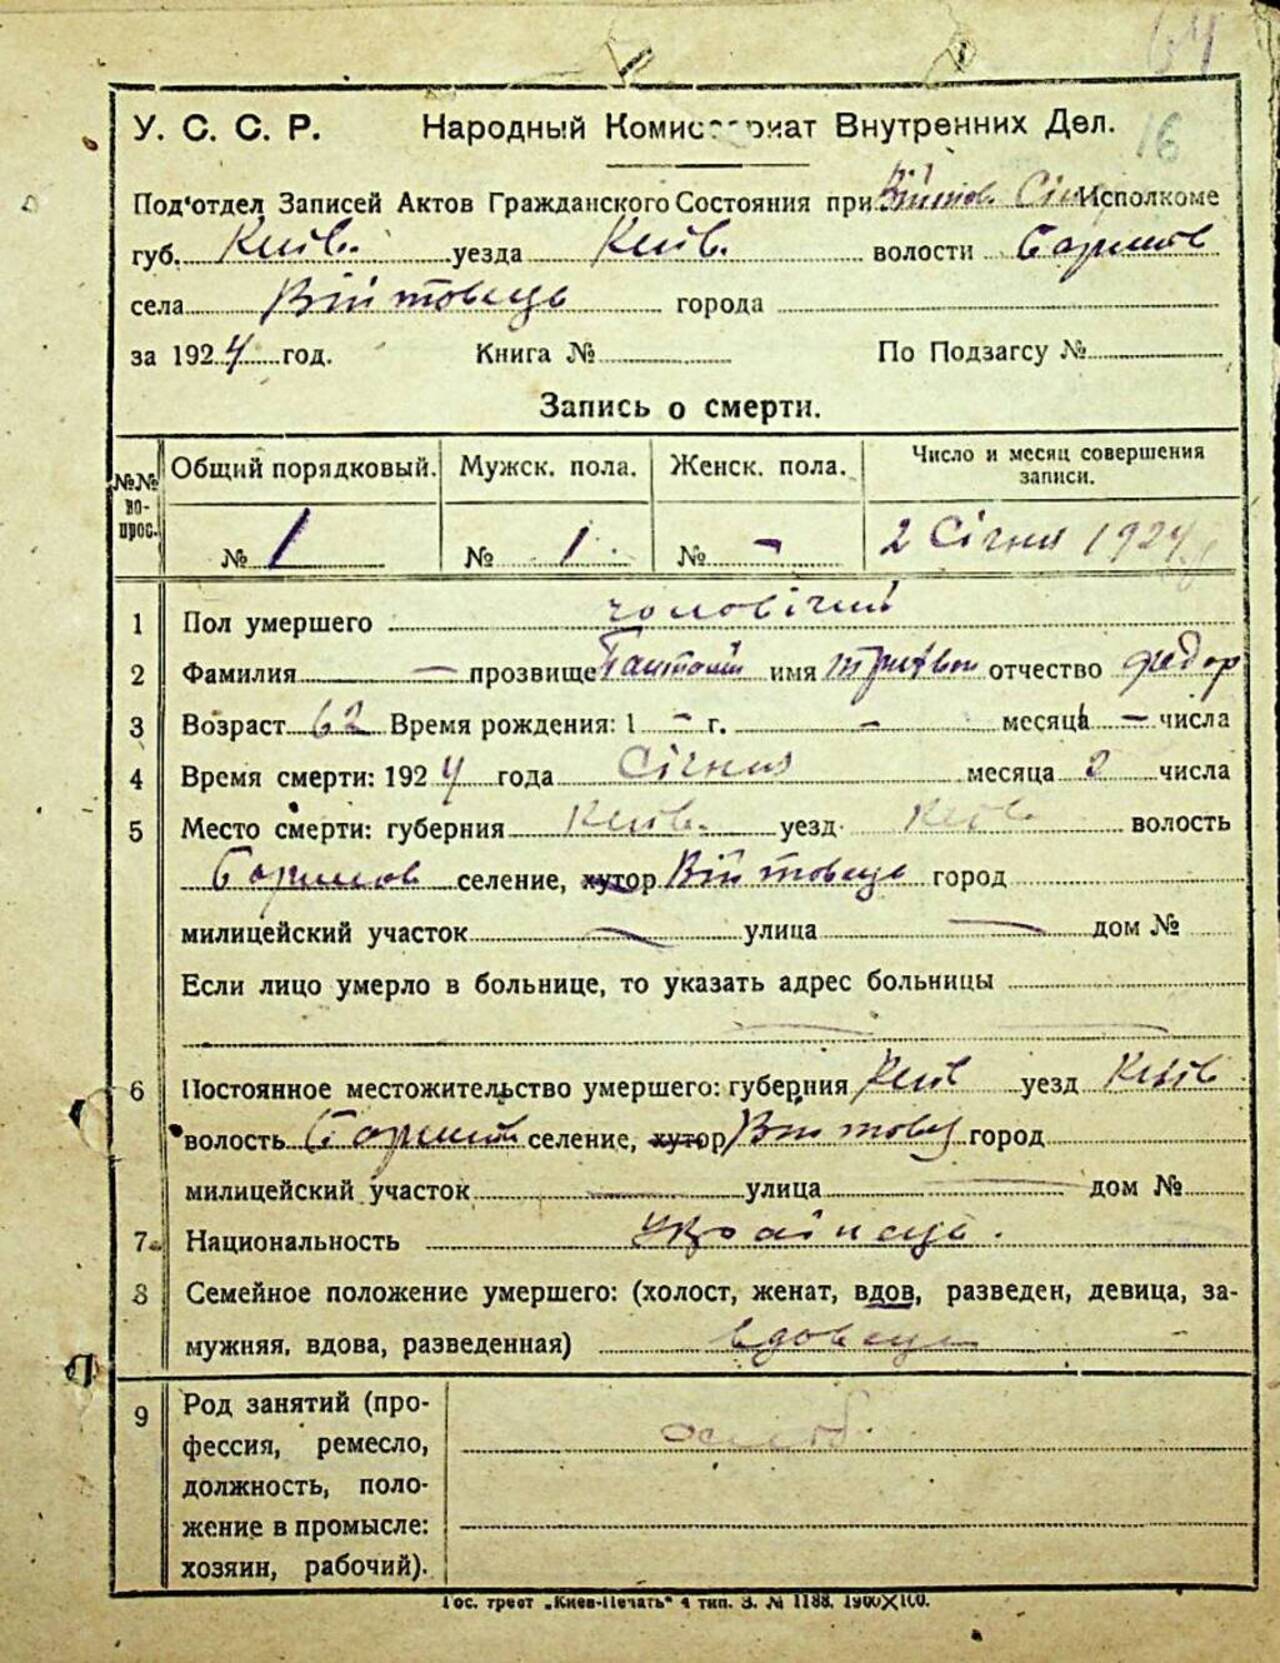 64
У. С. С. Р. Народный Комиссариат Внутренних Дел.
16
Под'отдел Записей Актов Гражданского Состояния при Війтов. Сіл Исполкоме
губ. Київ. уезда Київ. волости Баришів
села Війтовець города
за 1924 год. Книга № По Подзагсу №
Запись о смерти.
№№ вопрос. Общий порядковый. Мужск. пола. Женск. пола. Число и месяц совершения записи.
№ 1 № 1. № - 2 Січня 1924
1 Пол умершего чоловічий
2 Фамилия — прозвище имя отчество Федор
3 Возраст 62 Время рождения: 1 - г. - месяца - числа
4 Время смерти: 1924 года Січня месяца 2 числа
5 Место смерти: губерния Київ. уезд Київ. волость
Баришов селение, хутор Війтовець город
милицейский участок — улица — дом №
Если лицо умерло в больнице, то указать адрес больницы
6 Постоянное местожительство умершего: губерния Київ уезд Київ
волость Баришів селение, хутор Війтовец город
милицейский участок — улица — дом №
7 Национальность Українець.
8 Семейное положение умершего: (холост, женат, вдов, разведен, девица, за-
мужняя, вдова, разведенная) вдовець
9 Род занятий (про-
фессия, ремесло,
должность, поло-
жение в промысле:
хозяин, рабочий).
Гос. трест „Киев-Печать" 4 тип. З. № 1188. 1900×100.